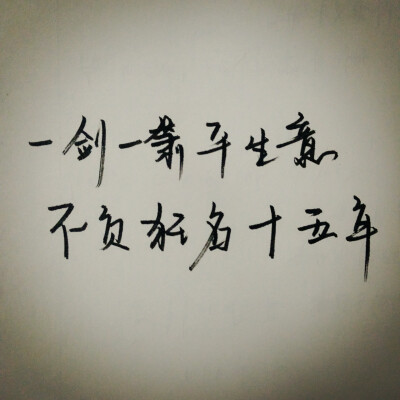 一剑一箫平生意
不负狂名十五年